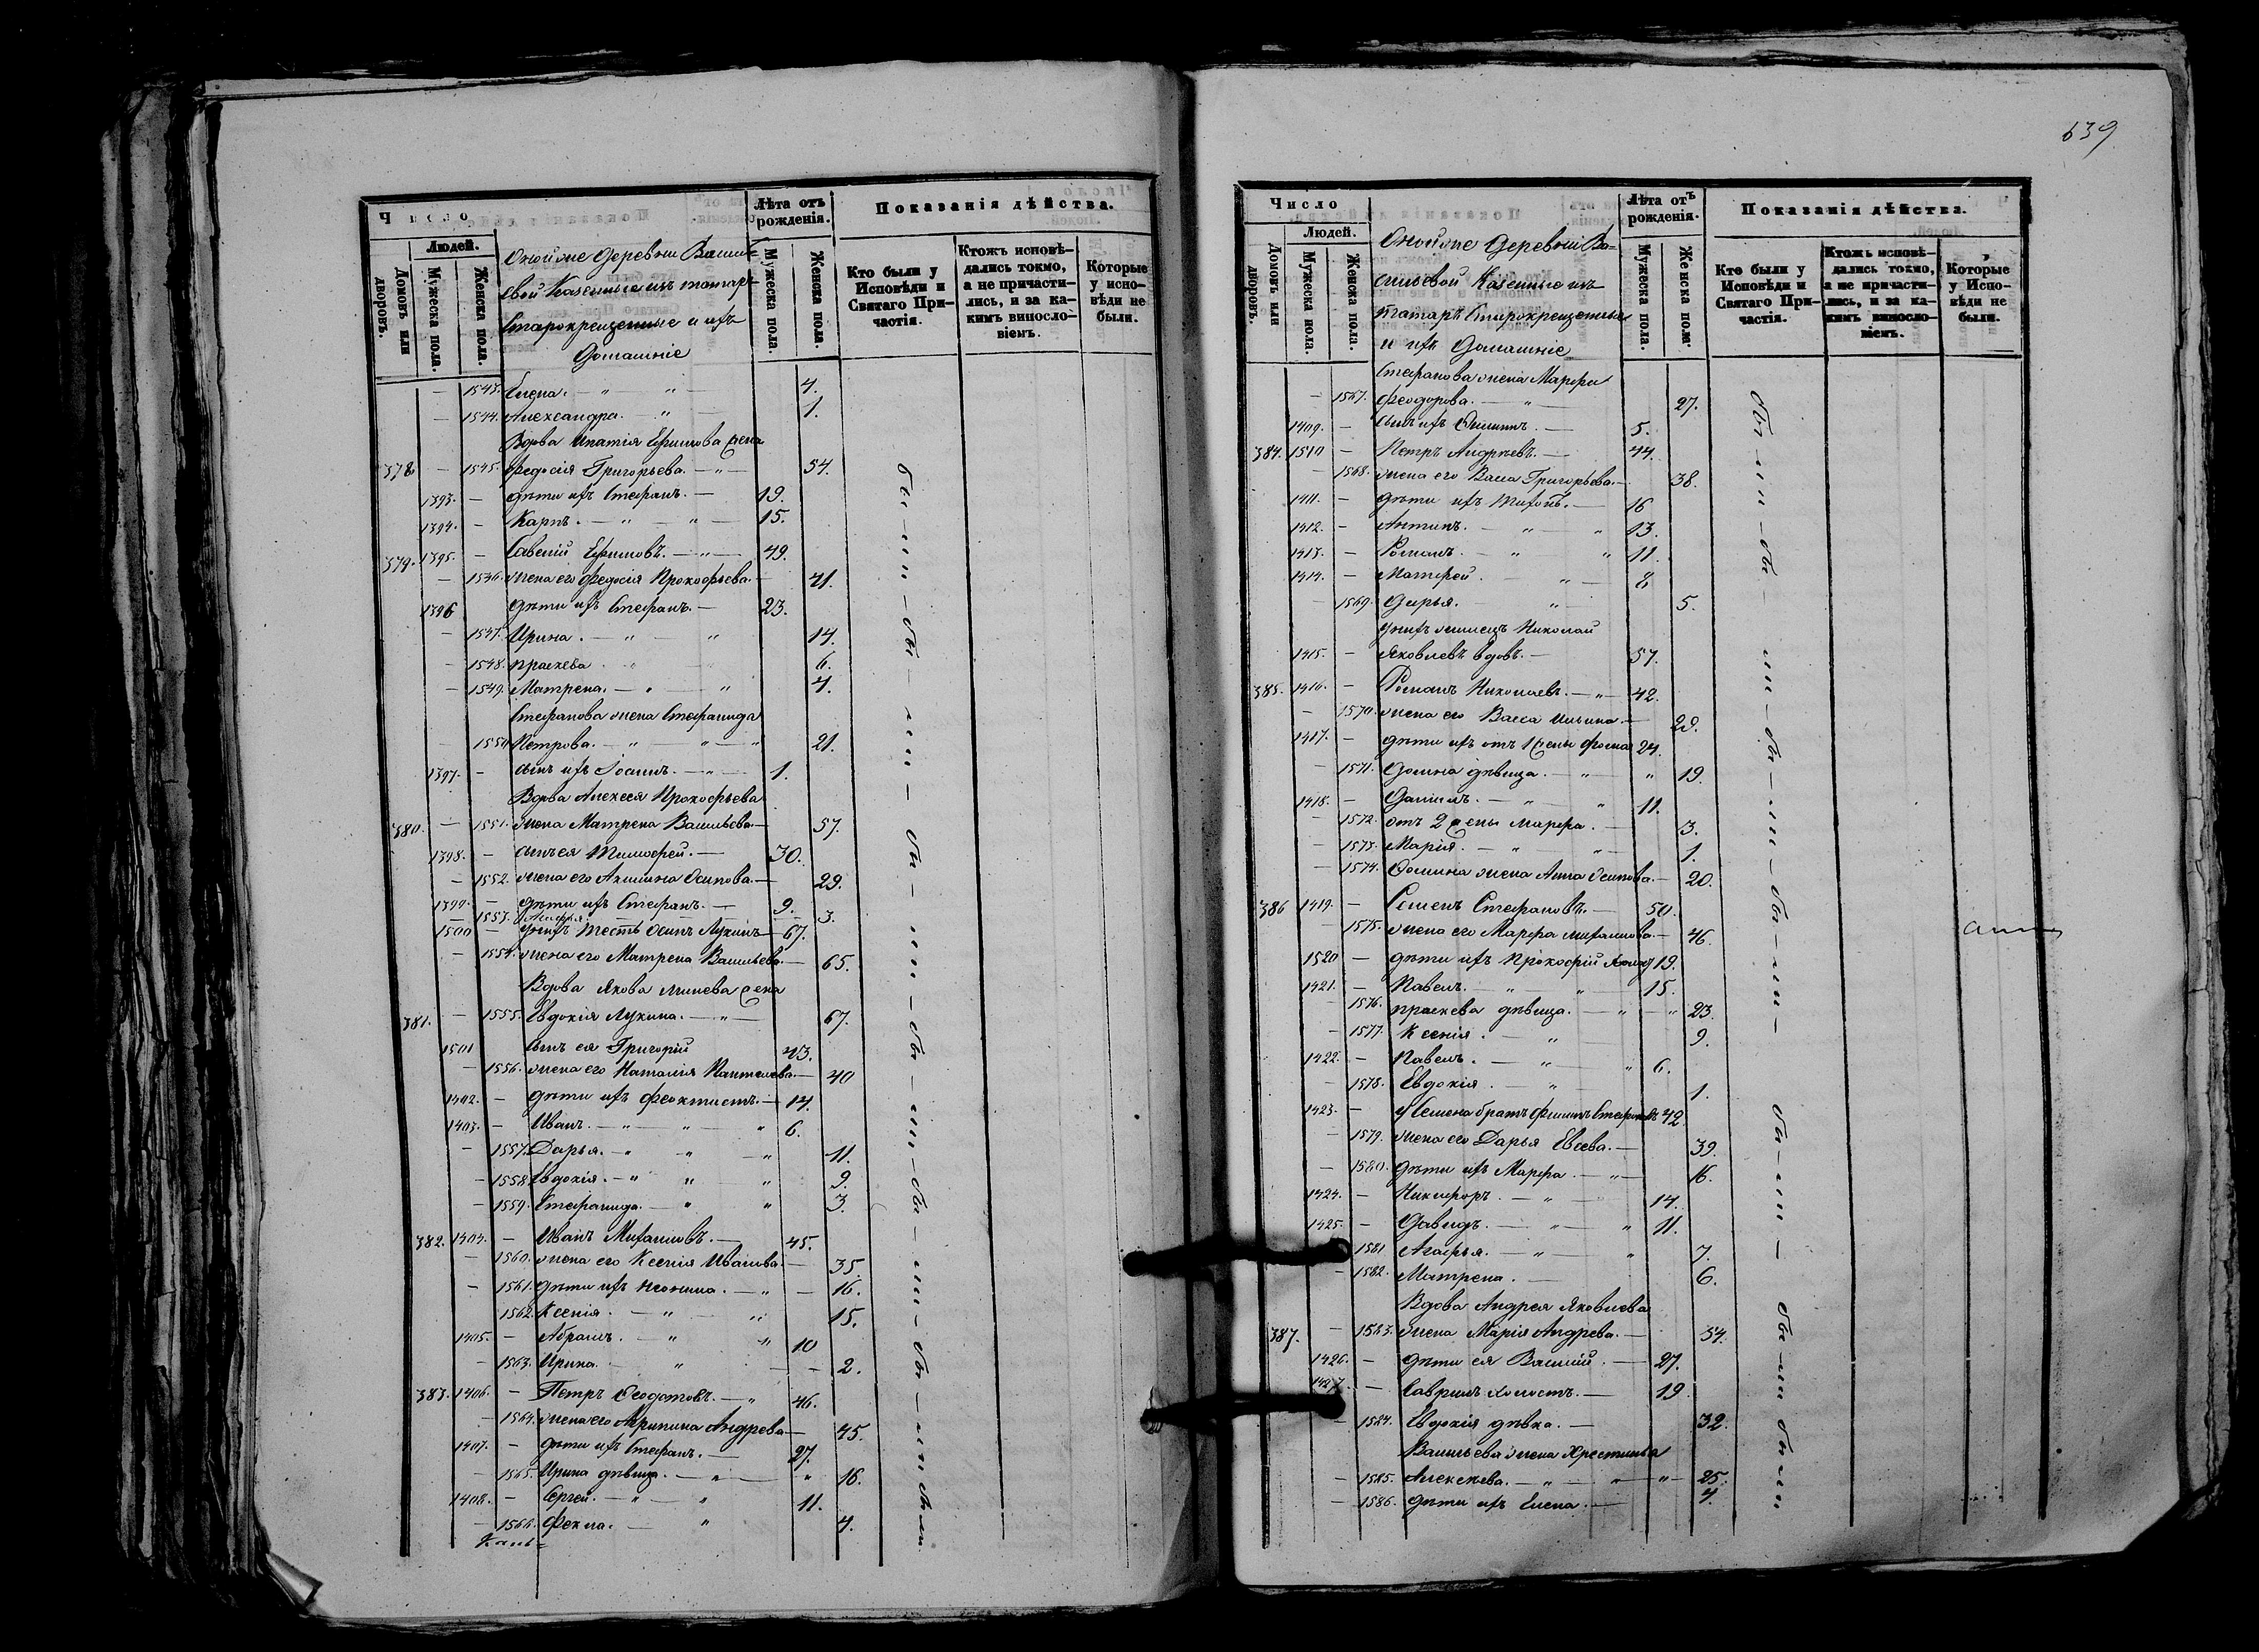 Число
Лѣта отъ рожденія.
Показанія дѣйства.
Людей.
Домовъ или дворовъ.
Мужеска пола.
Женска пола.
Мужеска пола.
Женска пола.
Кто были у Исповѣди и Святаго Причастія.
Ктожъ исповѣдались токмо, а не причастились, и за какимъ винословіемъ.
Которые у исповѣди не были.
Оной же деревни Василь-
евой Казенные изъ татаръ
Старокрещенные и ихъ
Домашніе
— 1543. Елена. — 4.
— 1544. Александра. — 1.
Вдова Ипатія Ефимова жена
378 — 1545. Федосія Григорьева. — 54.
1393. — дѣти ихъ Стефанъ. — 19.
1394. — Карпъ. — 15.
379. 1395. — Савелій Ефимовъ. — 49.
— 1546. жена его Федосія Прокофьева. — 41.
1396 дѣти ихъ Стефанъ. — 23.
— 1547. Ирина. — 14.
— 1548. Праскева — 6.
— 1549. Матрена. — 4.
Стефанова жена Стефанида
— 1550 Петрова. — 21.
1397. — сынъ ихъ Іоаннъ. — 1.
Вдова Алексея Прокофьева
380. — 1551. жена Матрена Васильева. — 57.
1398. — сынъ ея Тимофей. — 30.
— 1552. жена его Акилина Осипова. — 29.
1399. — дѣти ихъ Стефанъ. — 9.
— 1553. 3.
1500 — у нихъ тесть Осипъ Лукинъ — 67.
— 1554. жена его Матрена Васильева. — 65.
Вдова Якова Минева жена
381. — 1555. Евдокія Лукина. — 67.
1501 сынъ ея Григорій 43.
— 1556. жена его Наталия Пантелева. — 40
1402. — дѣти ихъ Феоктистъ. — 14.
1403. — Иванъ. — 6.
— 1557. Дарья. — 11.
— 1558. Евдокія. — 9.
— 1559. Стефанида. — 3.
382. 1404. — Иванъ Михаиловъ. — 45.
— 1560. жена его Ксенія Иванова. — 35.
— 1561. дѣти ихъ Неонила. — 16.
1562. Ксенія. — 15.
1405. — Абрамъ. — 10
— 1563. Ирина. — 2.
383. 1406. — Петръ Федотовъ. — 46.
— 1564. жена его Акрипина Андрева — 45.
1407. — дѣти ихъ Стефанъ. — 27.
— 1565. Ирина дѣвица. — 16.
1408. — Сергей. — 11.
— 1566. Фекла. — 4.
бы-ли-бы-ли-бы-ли-бы-ли-бы-ли-бы-ли были
639
Число
Лѣта отъ рожденія.
Показанія дѣйства.
Людей.
Домовъ или дворовъ.
Мужеска пола.
Женска пола.
Мужеска пола.
Женска пола.
Кто были у Исповѣди и Святаго Причастія.
Ктожъ исповѣдались токмо, а не причастились, и за какимъ винословіемъ.
Которые у Исповѣди не были.
Оной же деревни Ва-
сильевой Казенные изъ
татаръ Старокрещенные
и ихъ Домашніе
Стефанова жена Марфа
— 1567. Феодорова. — 27.
1409. — сынъ ихъ Филипъ. — 5.
384. 1510 — Петръ Андреевъ. — 44.
— 1568. жена его Васа Григорьева. — 38.
1411. — дѣти ихъ Тихонъ. — 16
1412. — Антипъ. — 13.
1413. — Романъ. — 11.
1414. — Матфей. — 8
— 1569. Дарья. — 5.
у нихъ жилецъ Николай
1415. — Яковлевъ вдовъ. — 57.
385. 1416. — Романъ Николаевъ. — 42.
— 1570. жена его Васса Ильина. — 28.
1417. — дѣти ихъ отъ 1 жены Фома 24.
— 1571. Домна дѣвица. — 19.
1418. — Даніилъ. — 11.
— 1572. отъ 2 жены Марфа. — 3.
— 1573. Марія. — 1.
— 1574. Фомина жена Анна Осипова. — 20.
386 1419. — Семенъ Стефановъ. — 50.
— 1575. жена его Марфа Михаилова. — 46.
1520 — дѣти ихъ Прокофій 19.
1421. — Павелъ. — 15.
— 1576. Праскева дѣвица. — 23.
— 1577. Ксенія. — 9.
1422. — Павелъ. — 6.
— 1578. Евдокія. — 1.
1423. — у Семена братъ Филипъ Стефановъ 42.
— 1579. жена его Дарья Евсева. — 39.
— 1580. дѣти ихъ Марфа. — 16.
1424. — Никифоръ. — 14.
1425. — Давидъ. — 11.
— 1581 Агафья. — 7.
— 1582. Матрена. — 6.
Вдова Андрея Яковлева
387. — 1583. жена Марія Андрева. — 54.
1426. — дѣти ея Василій. — 27.
1427. — Гаврилъ холостъ. — 19.
— 1584. Евдокія дѣвка. — 32.
Васильева жена Хрестинья
— 1585. Алексѣева. — 25.
— 1586. дѣти ихъ Елена. — 4.
бы-ли-бы-ли-бы-ли-бы-ли-бы-ли-бы-ли были